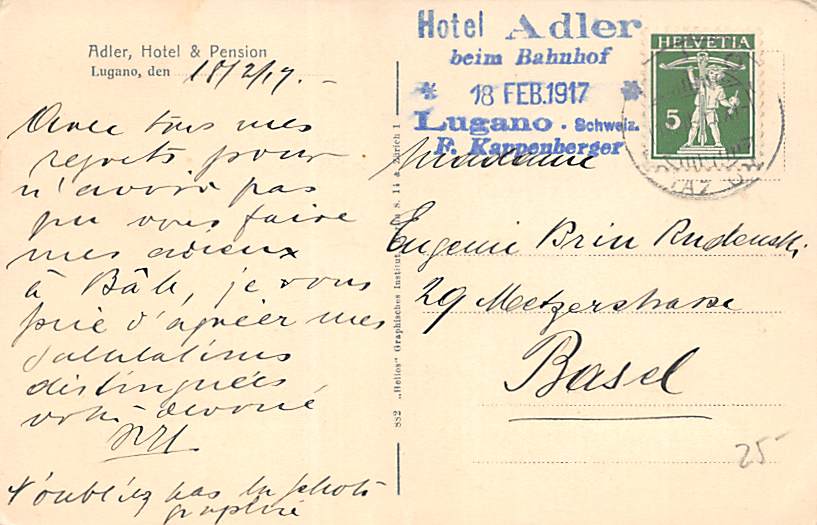 Adler, Hotel & Pension
Lugano, den 18/2/17. -
Avec tous mes
regrets pour
n'avoir pas
pu vous faire
mes adieux
à Bâle, je vous
prie d'agréer mes
salutations
distinguées
votre dévoué
N'oubliez pas la photo
graphie
882 „Helios" Graphisches Institut S. 14 a, Zürich 1
Hotel Adler
beim Bahnhof
* 18 FEB.1917 *
Lugano . Schweiz.
F. Kappenberger
HELVETIA
5
Madame
Eugenie Brin Rudenski
29 Metzerstrasse
Basel
25-